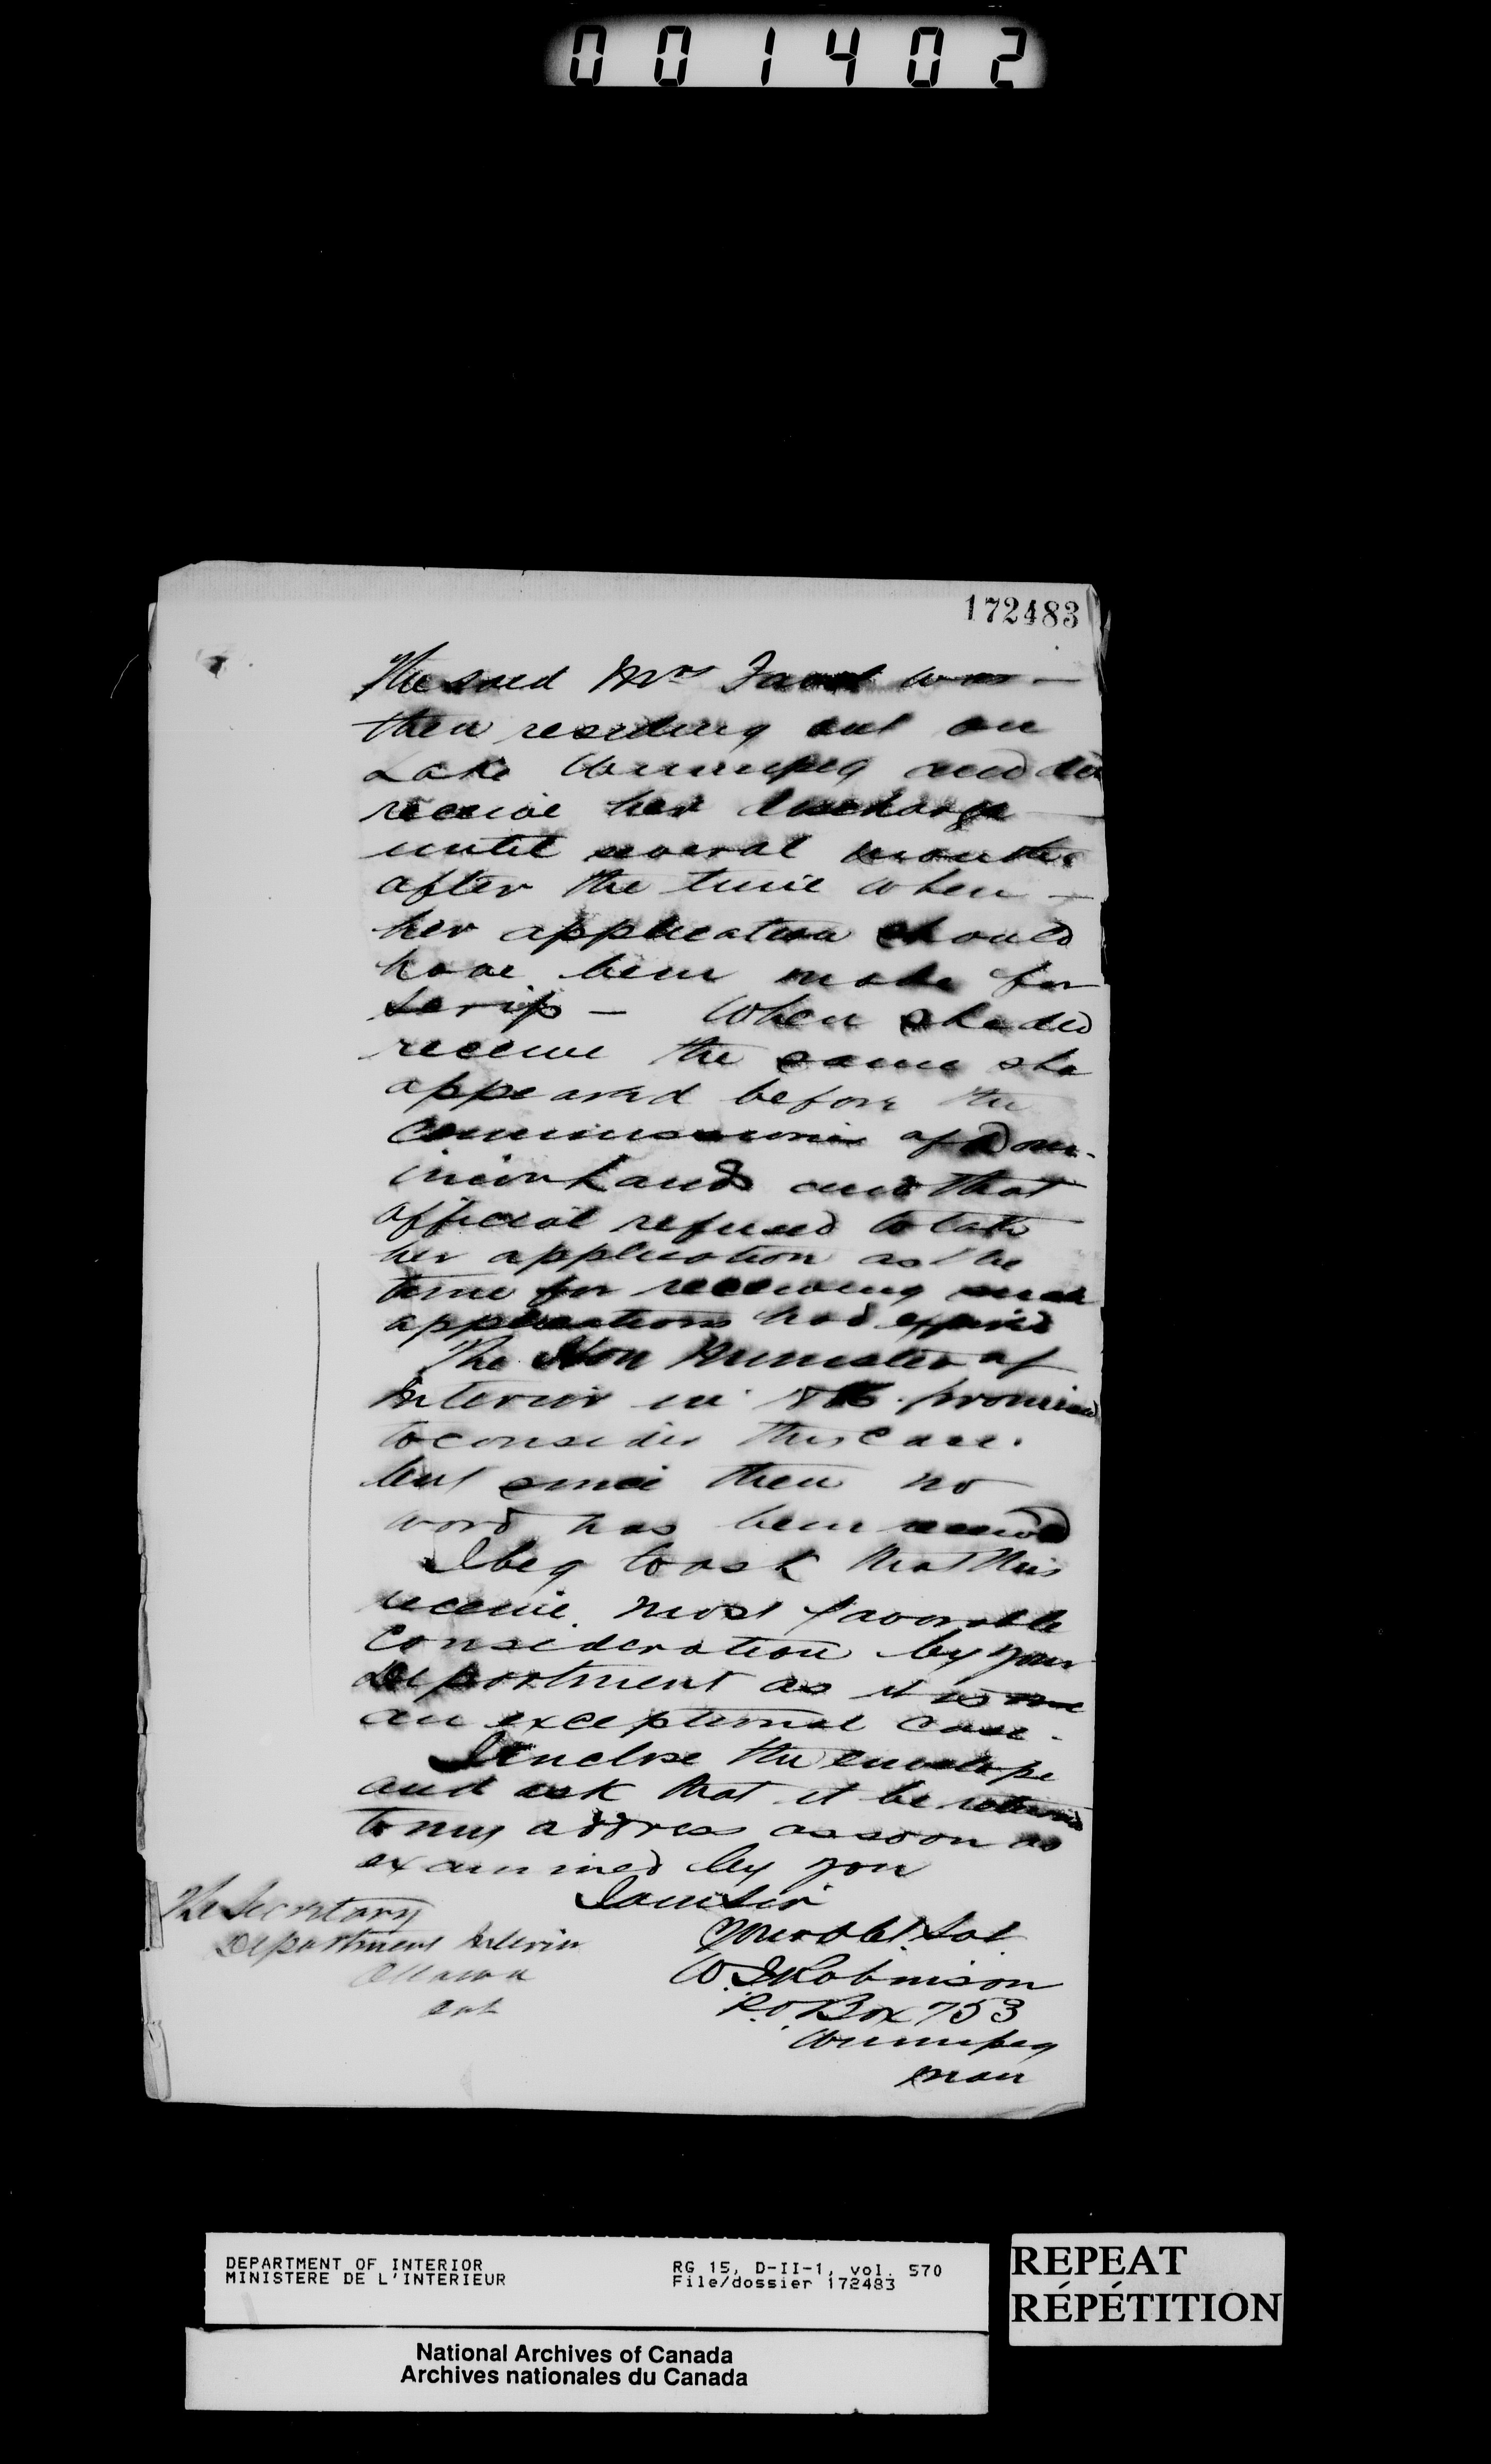 001402
172483
The said Mrs was —
then residing out on
Lake Winnipeg and did
receive her discharge —
until several months
after the time when —
her application should
have been made for
Scrip — When she did
receive the same she
appeared before the
Commissioner of Dom-
inion Lands and that
official refused to take
her application as the
time for receiving such
applications had expired
The Hon Minister of
Interior in promised
to consider this case.
but since then no
word has been received
I beg to ask that this
receive most favorable
consideration by your
Department as it is
an exceptional case.
I enclose the envelope
and ask that it be returned
to my address as soon as
examined by you
I am Sir
Your obt. Svt.
W. J. Robinson
P.O. Box 753
Winnipeg
Man
The Secretary
Department Interior
Ottawa
Ont
DEPARTMENT OF INTERIOR
MINISTERE DE L'INTERIEUR
RG 15, D-II-1, vol. 570
File/dossier 172483
REPEAT
RÉPÉTITION
National Archives of Canada
Archives nationales du Canada